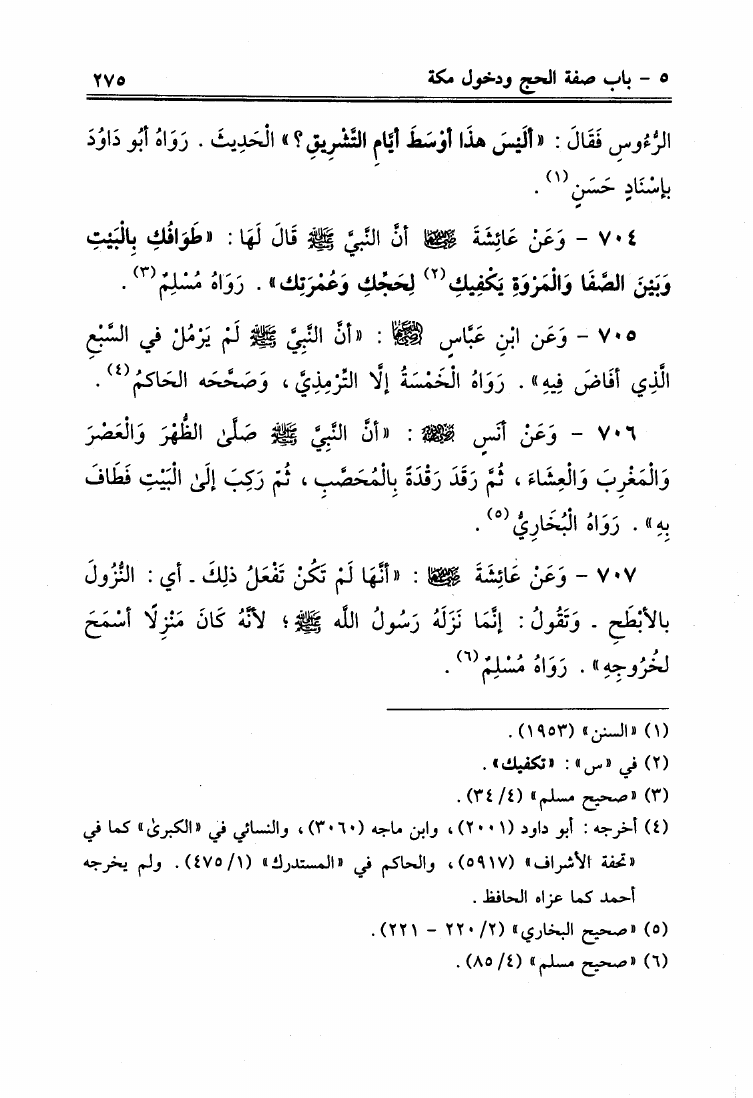 ٥ - باب صفة الحج ودخول مكة ٢٧٥
الرُّءُوسِ فَقَالَ : «أَلَيْسَ هذَا أَوْسَطَ أَيَّامِ التَّشْرِيقِ؟» الْحَدِيثَ . رَوَاهُ أَبُو دَاوُدَ
بِإِسْنَادٍ حَسَنٍ(١) .
٧٠٤ - وَعَنْ عَائِشَةَ رضي الله عنها أَنَّ النَّبِيَّ ﷺ قَالَ لَهَا : «طَوَافُكِ بِالْبَيْتِ
وَبَيْنَ الصَّفَا وَالْمَرْوَةِ يَكْفِيكِ(٢) لِحَجِّكِ وَعُمْرَتِك» . رَوَاهُ مُسْلِمٌ(٣) .
٧٠٥ - وَعَن ابْنِ عَبَّاسٍ رضي الله عنهما : «أَنَّ النَّبِيَّ ﷺ لَمْ يَرْمُلْ في السَّبْعِ
الَّذِي أَفَاضَ فِيهِ» . رَوَاهُ الْخَمْسَةُ إلَّا التِّرْمِذِيَّ ، وَصَحَّحَه الحَاكمُ(٤) .
٧٠٦ - وَعَنْ أَنَسٍ رضي الله عنه : «أَنَّ النَّبِيَّ ﷺ صَلَّىٰ الظُّهْرَ وَالْعَصْرَ
وَالْمَغْرِبَ وَالْعِشَاءَ ، ثُمَّ رَقَدَ رَقْدَةً بِالْمُحَصَّبِ ، ثُمّ رَكِبَ إِلَىٰ الْبَيْتِ فَطَافَ
بِهِ» . رَوَاهُ الْبُخَارِيُّ(٥) .
٧٠٧ - وَعَنْ عَائِشَةَ رضي الله عنها : «أَنَّهَا لَمْ تَكُنْ تَفْعَلُ ذلِكَ ـ أي : النُّزُولَ
بِالأَبْطَحِ ـ وَتَقُولُ : إِنَّمَا نَزَلَهُ رَسُولُ اللَّه ﷺ ؛ لأَنَّهُ كَانَ مَنْزِلًا أَسْمَحَ
لخُرُوجِهِ» . رَوَاهُ مُسْلِمٌ(٦) .
(١) «السنن» (١٩٥٣) .
(٢) في «س» : «تكفيك» .
(٣) «صحيح مسلم» (٣٤/٤) .
(٤) أخرجه : أبو داود (٢٠٠١) ، وابن ماجه (٣٠٦٠) ، والنسائي في «الكبرىٰ» كما في
«تحفة الأشراف» (٥٩١٧) ، والحاكم في «المستدرك» (٤٧٥/١) . ولم يخرجه
أحمد كما عزاه الحافظ .
(٥) «صحيح البخاري» (٢٢٠/٢ - ٢٢١) .
(٦) «صحيح مسلم» (٨٥/٤) .